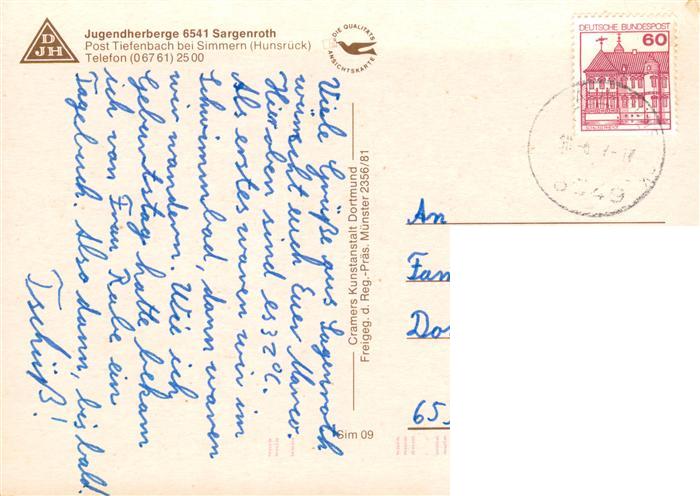 DJH
Jugendherberge 6541 Sargenroth
Post Tiefenbach bei Simmern (Hunsrück)
Telefon (0 67 61) 25 00
DIE QUALITÄTS
ANSICHTSKARTE
DEUTSCHE BUNDESPOST
60
Viele Grüße aus Sagenroth
wünscht euch Euer Marco.
Hier oben sind es 32°C.
Als erstes waren wir im
Schwimmbad, dann waren
wir wandern. Wie ich
Geburtstag hatte bekam
ich von Frau Rube ein
Tagebuch. Also dann, bis bald.
Tschüß!
Cramers Kunstanstalt Dortmund
Freigeg. d. Reg.-Präs. Münster 2356/81
Sim 09
An
Fam
Do
65